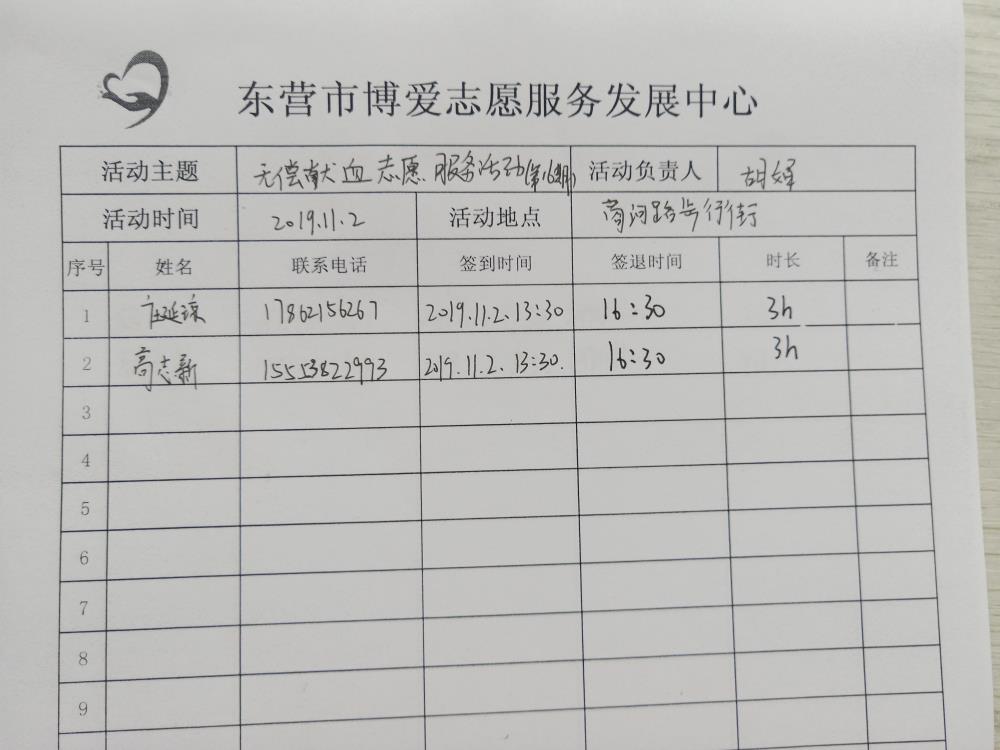 东营市博爱志愿服务发展中心
活动主题 无偿献血志愿服务活动(第16期) 活动负责人 胡
活动时间 2019.11.2 活动地点 商河路步行街
序号 姓名 联系电话 签到时间 签退时间 时长 备注
1 庄延琼 17862156267 2019.11.2.13:30 16:30 3h
2 高志新 15553822993 2019.11.2.13:30. 16:30 3h
3
4
5
6
7
8
9